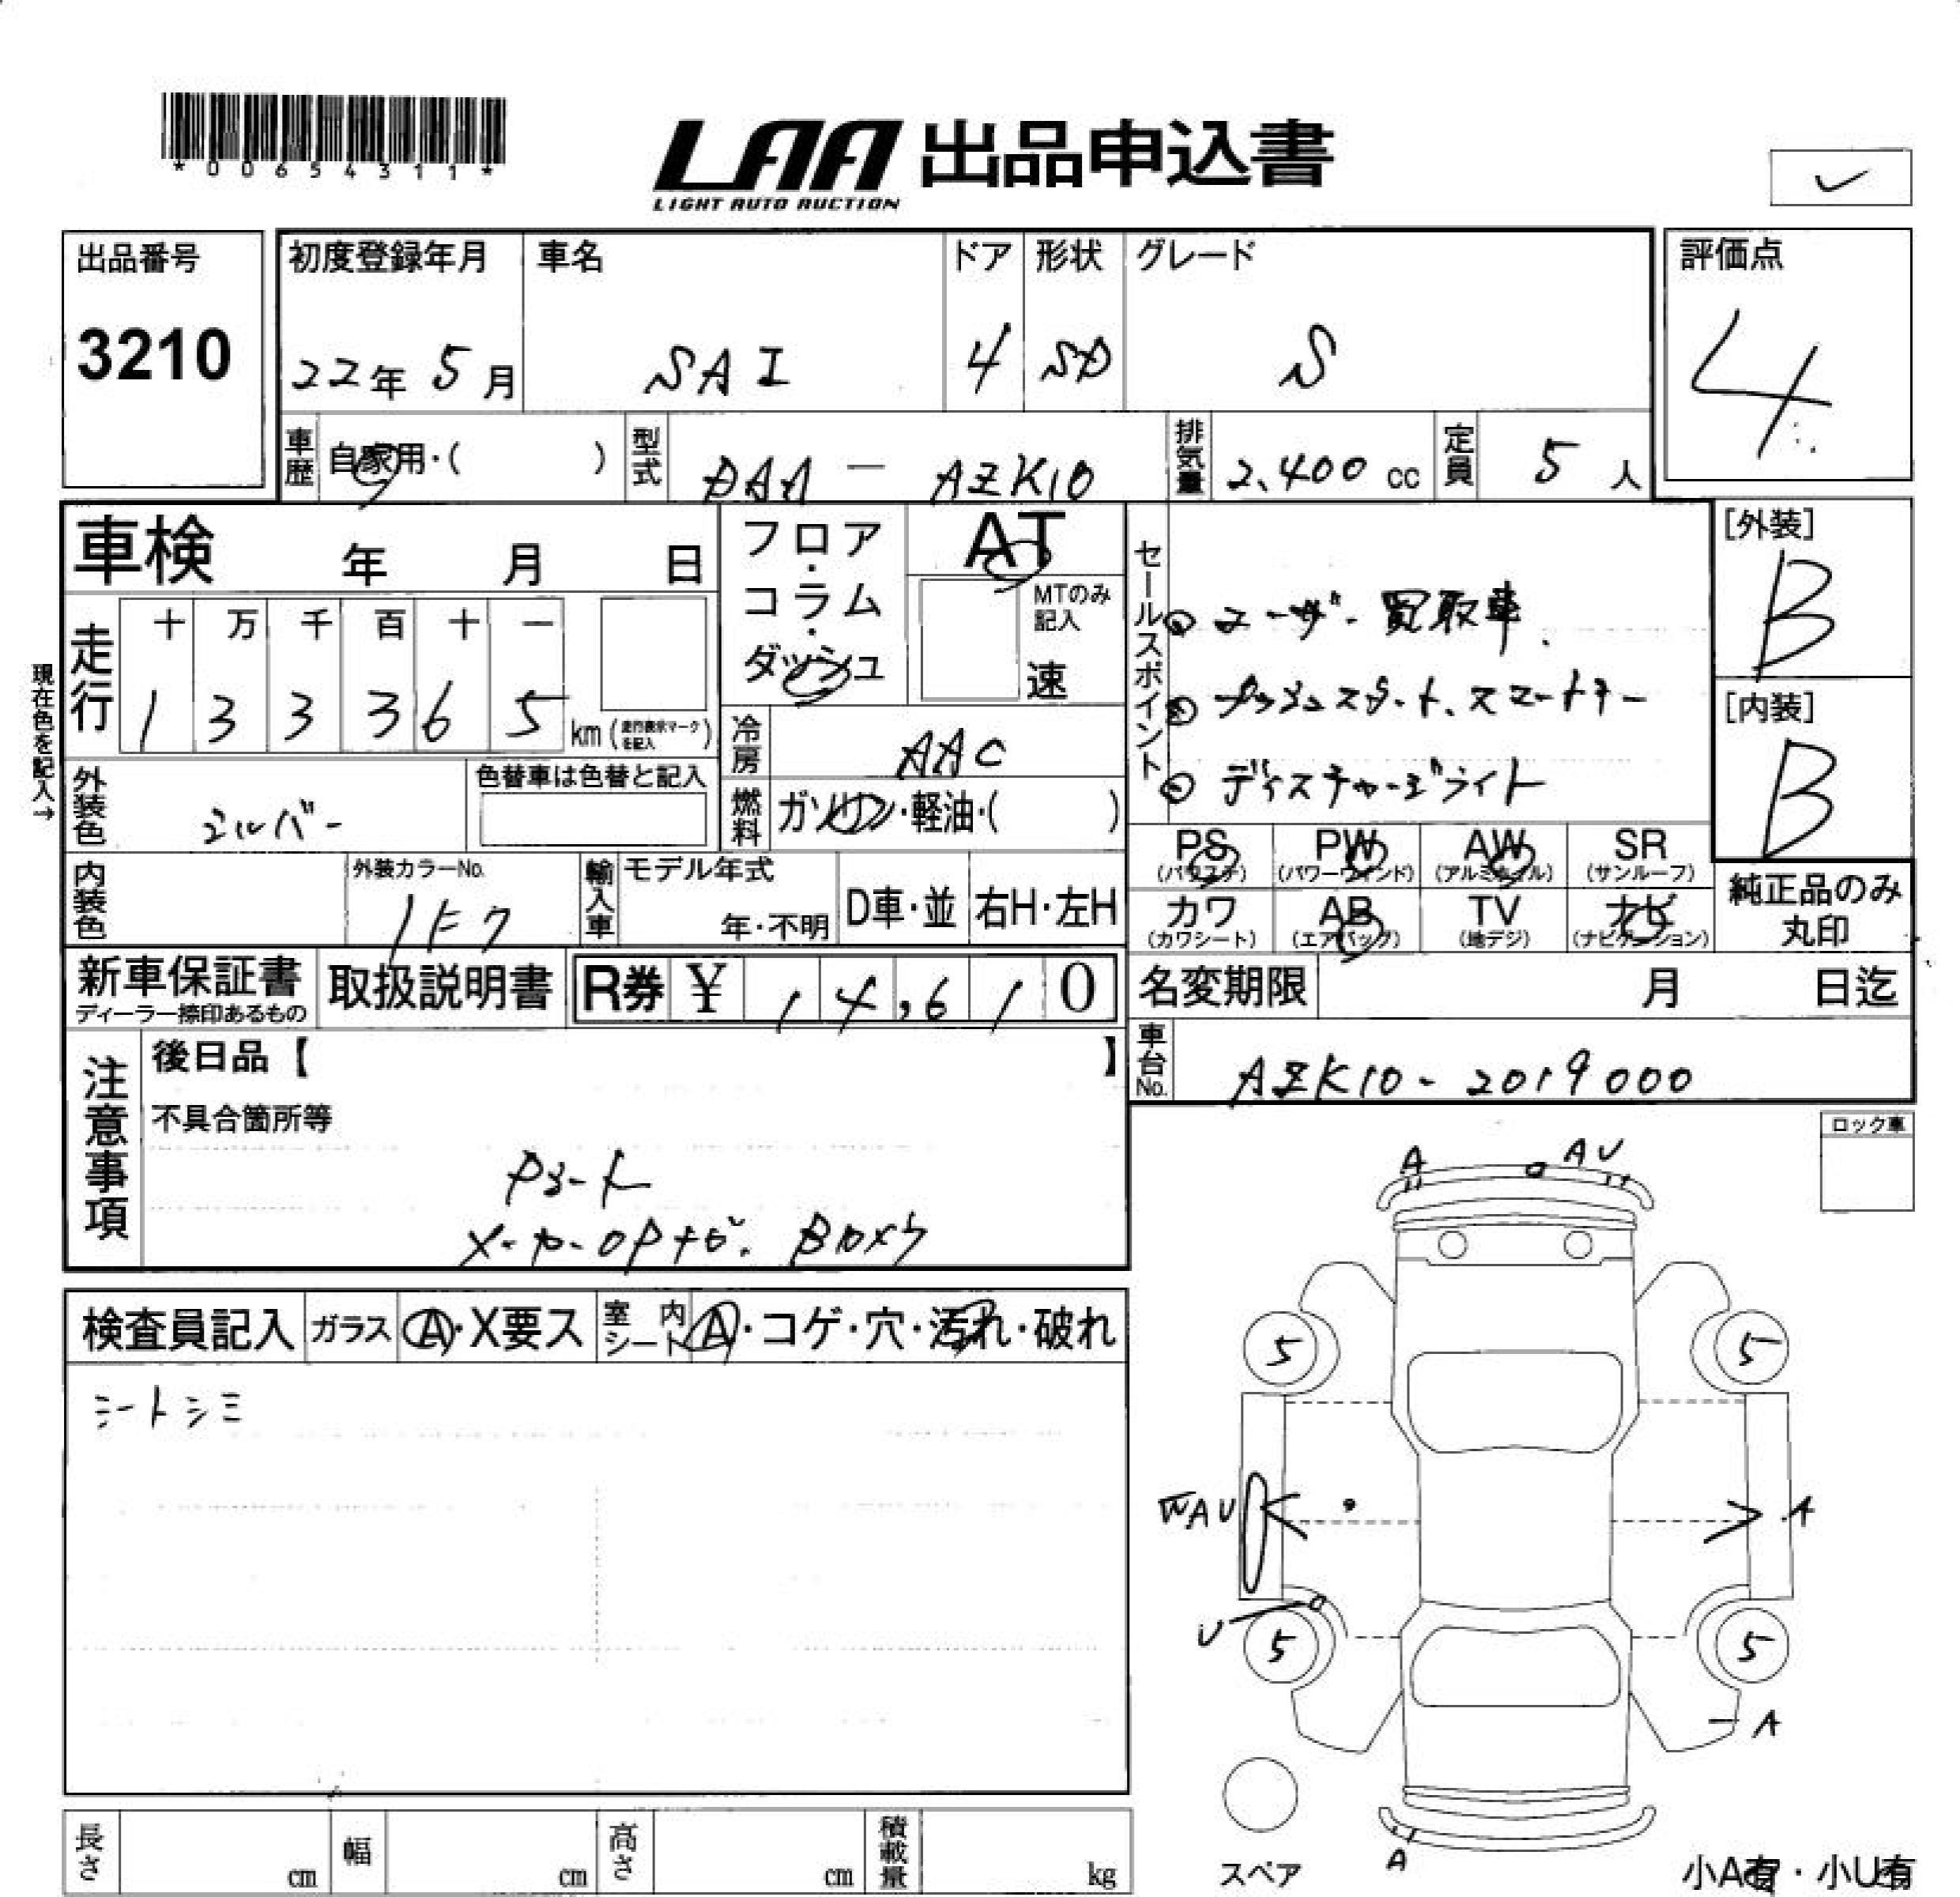 *00654311*
LAA 出品申込書
LIGHT AUTO AUCTION
出品番号
3210
初度登録年月
22年5月
車名
SAI
ドア
4
形状
SD
グレード
S
評価点
4
車歴
自家用・( )
型式
DAA - AZK10
排気量
2,400 cc
定員
5 人
車検 年 月 日
フロア・コラム・ダッシュ
AT
MTのみ記入
速
セールスポイント
ユーザー買取車
プッシュスタート、スマートキー
ディスチャージライト
[外装]
B
[内装]
B
現在色を記入→
走行
十 万 千 百 十 一
1 3 3 3 6 5 km (走行表示マークを記入)
冷房
AAC
燃料
ガソリン・軽油・( )
外装色
シルバー
色替車は色替と記入
内装色
外装カラーNo.
1F7
輸入車
モデル年式
年・不明
D車・並
右H・左H
PS (パワステ)
PW (パワーウィンド)
AW (アルミホイル)
SR (サンルーフ)
カワ (カワシート)
AB (エアバッグ)
TV (地デジ)
ナビ (ナビゲーション)
純正品のみ丸印
新車保証書
ディーラー捺印あるもの
取扱説明書
R券 ¥ 14,610
名変期限 月 日迄
車台No.
AZK10-2019000
注意事項
後日品【 】
不具合箇所等
Pシート
メーカーOPナビ.
ロック車
検査員記入
ガラス
A・X要ス
室内シート
A・コゲ・穴・汚れ・破れ
シートシミ
A
AU
5
5
WAU
A
U
5
5
A
A
スペア
小A有・小U有
長さ cm
幅 cm
高さ cm
積載量 kg